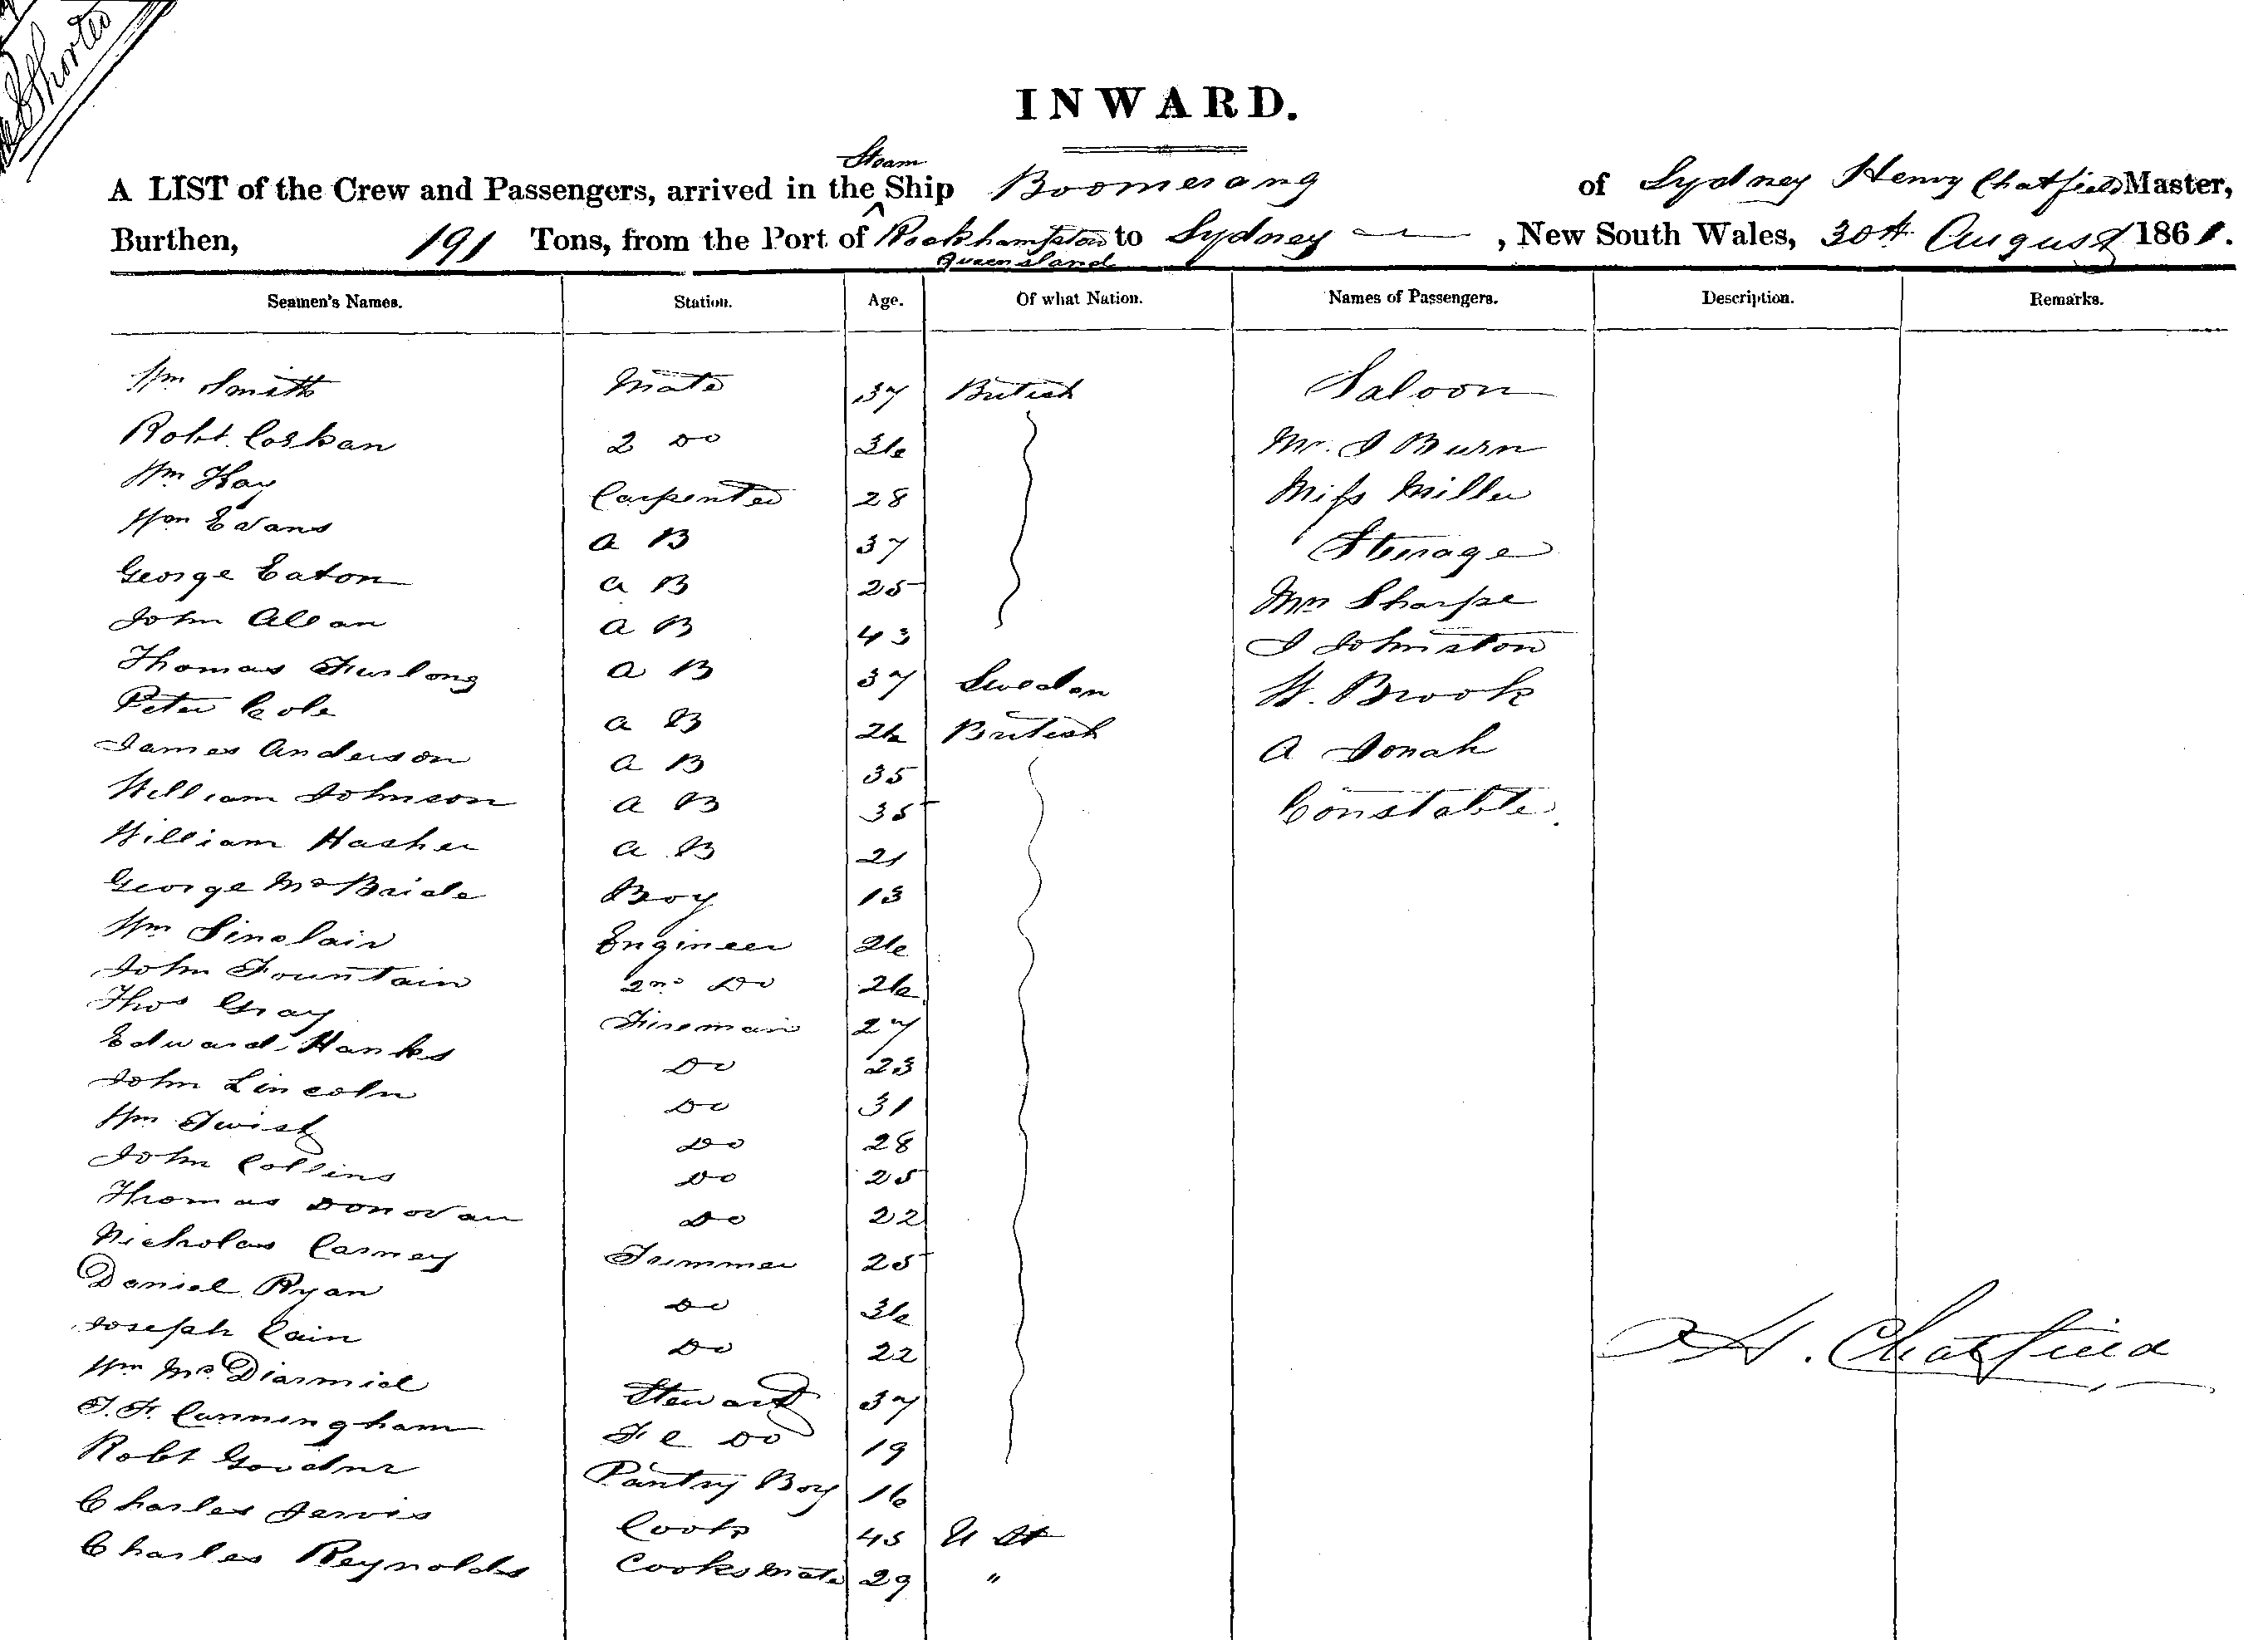 Shorter
INWARD.
Steam
A LIST of the Crew and Passengers, arrived in the Ship Boomerang of Sydney Henry Chatfield Master,
Burthen, 191 Tons, from the Port of Rockhampton to Sydney , New South Wales, 30th August 1861.
Queensland
Seamen's Names. Station. Age. Of what Nation. Names of Passengers. Description. Remarks.
Wm Smith Mate 37 British Saloon
Robt. Corkan 2 Do 36 Mr. J Burn
Wm Hay Carpenter 28 Miss Miller
Wm Evans A B 37 Steerage
George Eaton A B 25 Mrs Sharpe
John Allan A B 43 J Johnston
Thomas Furlong A B 37 Sweden W. Brook
Peter Cole A B 26 British A Jonah
James Anderson A B 35 Constable.
William Johnson A B 35
William Hasher A B 21
George McBride Boy 13
Wm Sinclair Engineer 26
John Fountain 2nd Do 26
Thos Gray Fireman 27
Edward Hanks Do 23
John Lincoln Do 31
Wm Twist Do 28
John Collins Do 25
Thomas Donovan Do 22
Nicholas Carney Trimmer 25
Daniel Ryan Do 36
Joseph Cain Do 22
H. Chatfield
Wm McDiarmid Steward 37
T. F. Cunningham F C Do 19
Robt Pantry Boy 16
Charles Jervis Cook 45 U St
Charles Reynolds Cooks Mate 29 "